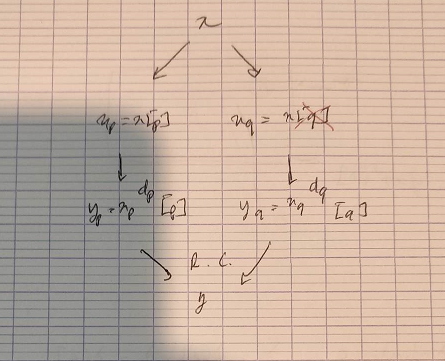 x
x_p = x[p] x_q = x[q]
y_p = x_p^{d_p} [p] y_q = x_q^{d_q} [q]
R. C.
y